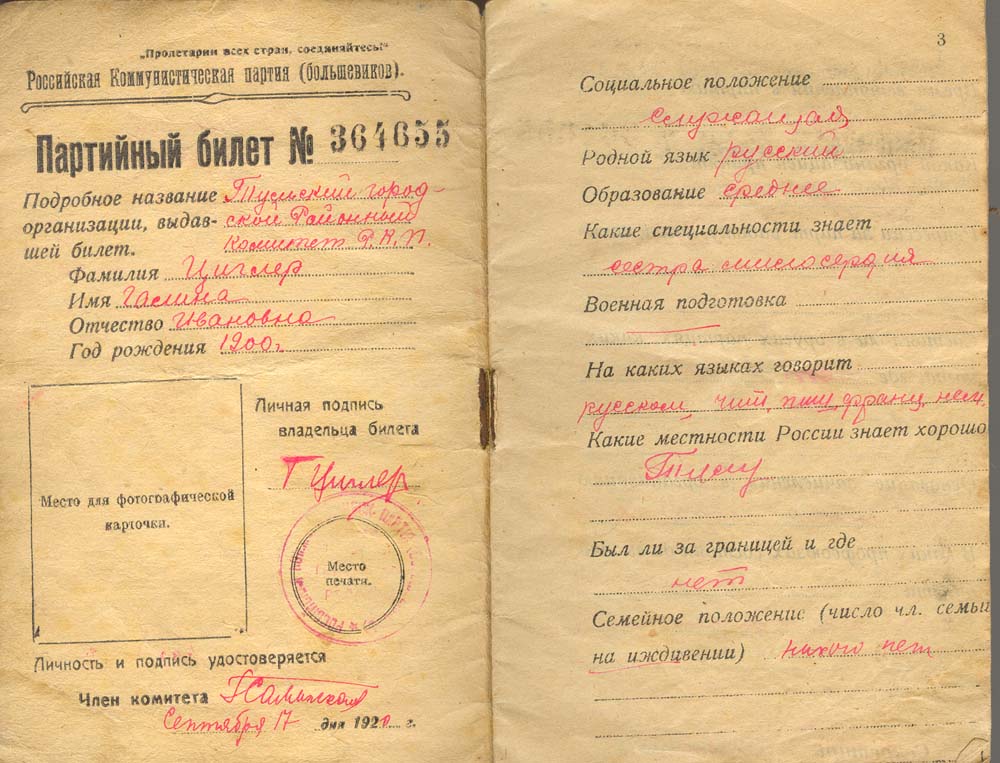 „Пролетарии всех стран, соединяйтесь!“
Российская Коммунистическая партия (большевиков).
Партийный билет № 364655
Подробное название
организации, выдав-
шей билет. Комитет Р.К.П.
Фамилия Циглер
Имя Галина
Отчество Ивановна
Год рождения 1900 г.
Место для фотографической
карточки.
Личная подпись
владельца билета
Г Циглер
Место
печати.
Личность и подпись удостоверяется
Член комитета
Сентября 17 дня 1920 г.
3
Социальное положение
служащая
Родной язык русский
Образование среднее
Какие специальности знает
сестра милосердия
Военная подготовка —
На каких языках говорит
русском, чит, пиш, франц, нем.
Какие местности России знает хорошо
Был ли за границей и где
нет
Семейное положение (число чл. семьи
на иждивении) никого нет